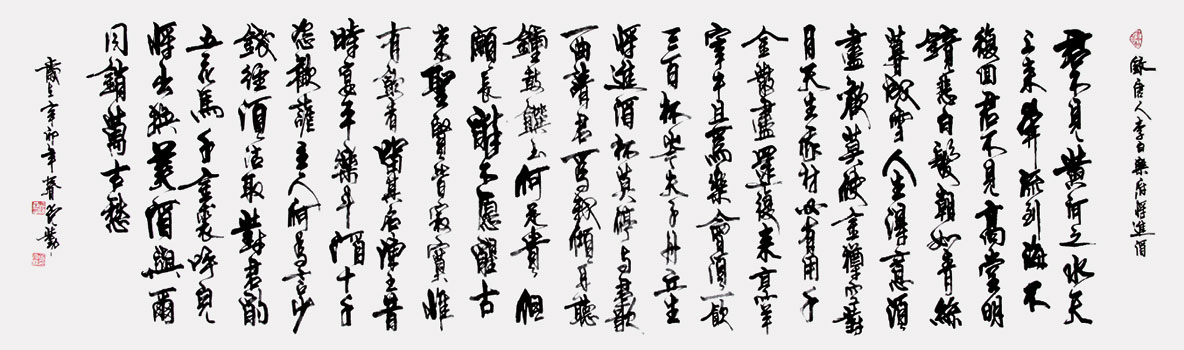 錄唐人李白樂府將進酒
君不見黃河之水天
上來奔流到海不
復回君不見高堂明
鏡悲白髮朝如青絲
暮成雪人生得意須
盡歡莫使金樽空對
月天生我材必有用千
金散盡還復來烹羊
宰牛且為樂會須一飲
三百杯岑夫子丹丘生
將進酒杯莫停與君歌
一曲請君為我傾耳聽
鐘鼓饌玉何足貴但
願長醉不願醒古
來聖賢皆寂寞惟
有飲者留其名陳王昔
時宴平樂斗酒十千
恣歡謔主人何為言少
錢徑須沽取對君酌
五花馬千金裘呼兒
將出換美酒與爾
同銷萬古愁
辛卯年春